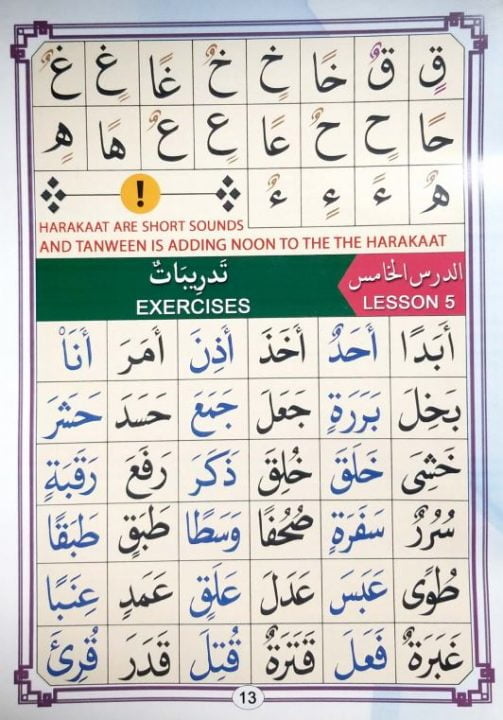 قٍ قٌ خًا خٍ خٌ غًا غٍ غٌ
حًا حٍ حٌ عًا عٍ عٌ هًا هٍ
هٌ ءً ءٍ ءٌ !
HARAKAAT ARE SHORT SOUNDS
AND TANWEEN IS ADDING NOON TO THE THE HARAKAAT
الدرس الخامس تَدرِيبَاتٌ
LESSON 5 EXERCISES
أَبَدًا أَحَدٌ أَخَذَ أَذِنَ أَمَرَ أَنَاْ
بَخِلَ بَرَرَةٍ جَعَلَ جَمَعَ حَسَدَ حَشَرَ
خَشِىَ خَلَقَ خُلِقَ ذَكَرَ رَفَعَ رَقَبَةٍ
سُرُرٌ سَفَرَةٍ صُحُفًا وَسَطًا طَبَقٍ طَبَقًا
طُوًى عَبَسَ عَدَلَ عَلَقٍ عَمَدٍ عِنَبًا
غَبَرَةٌ فَعَلَ قَتَرَةٌ قُتِلَ قَدَرَ قُرِئَ
13